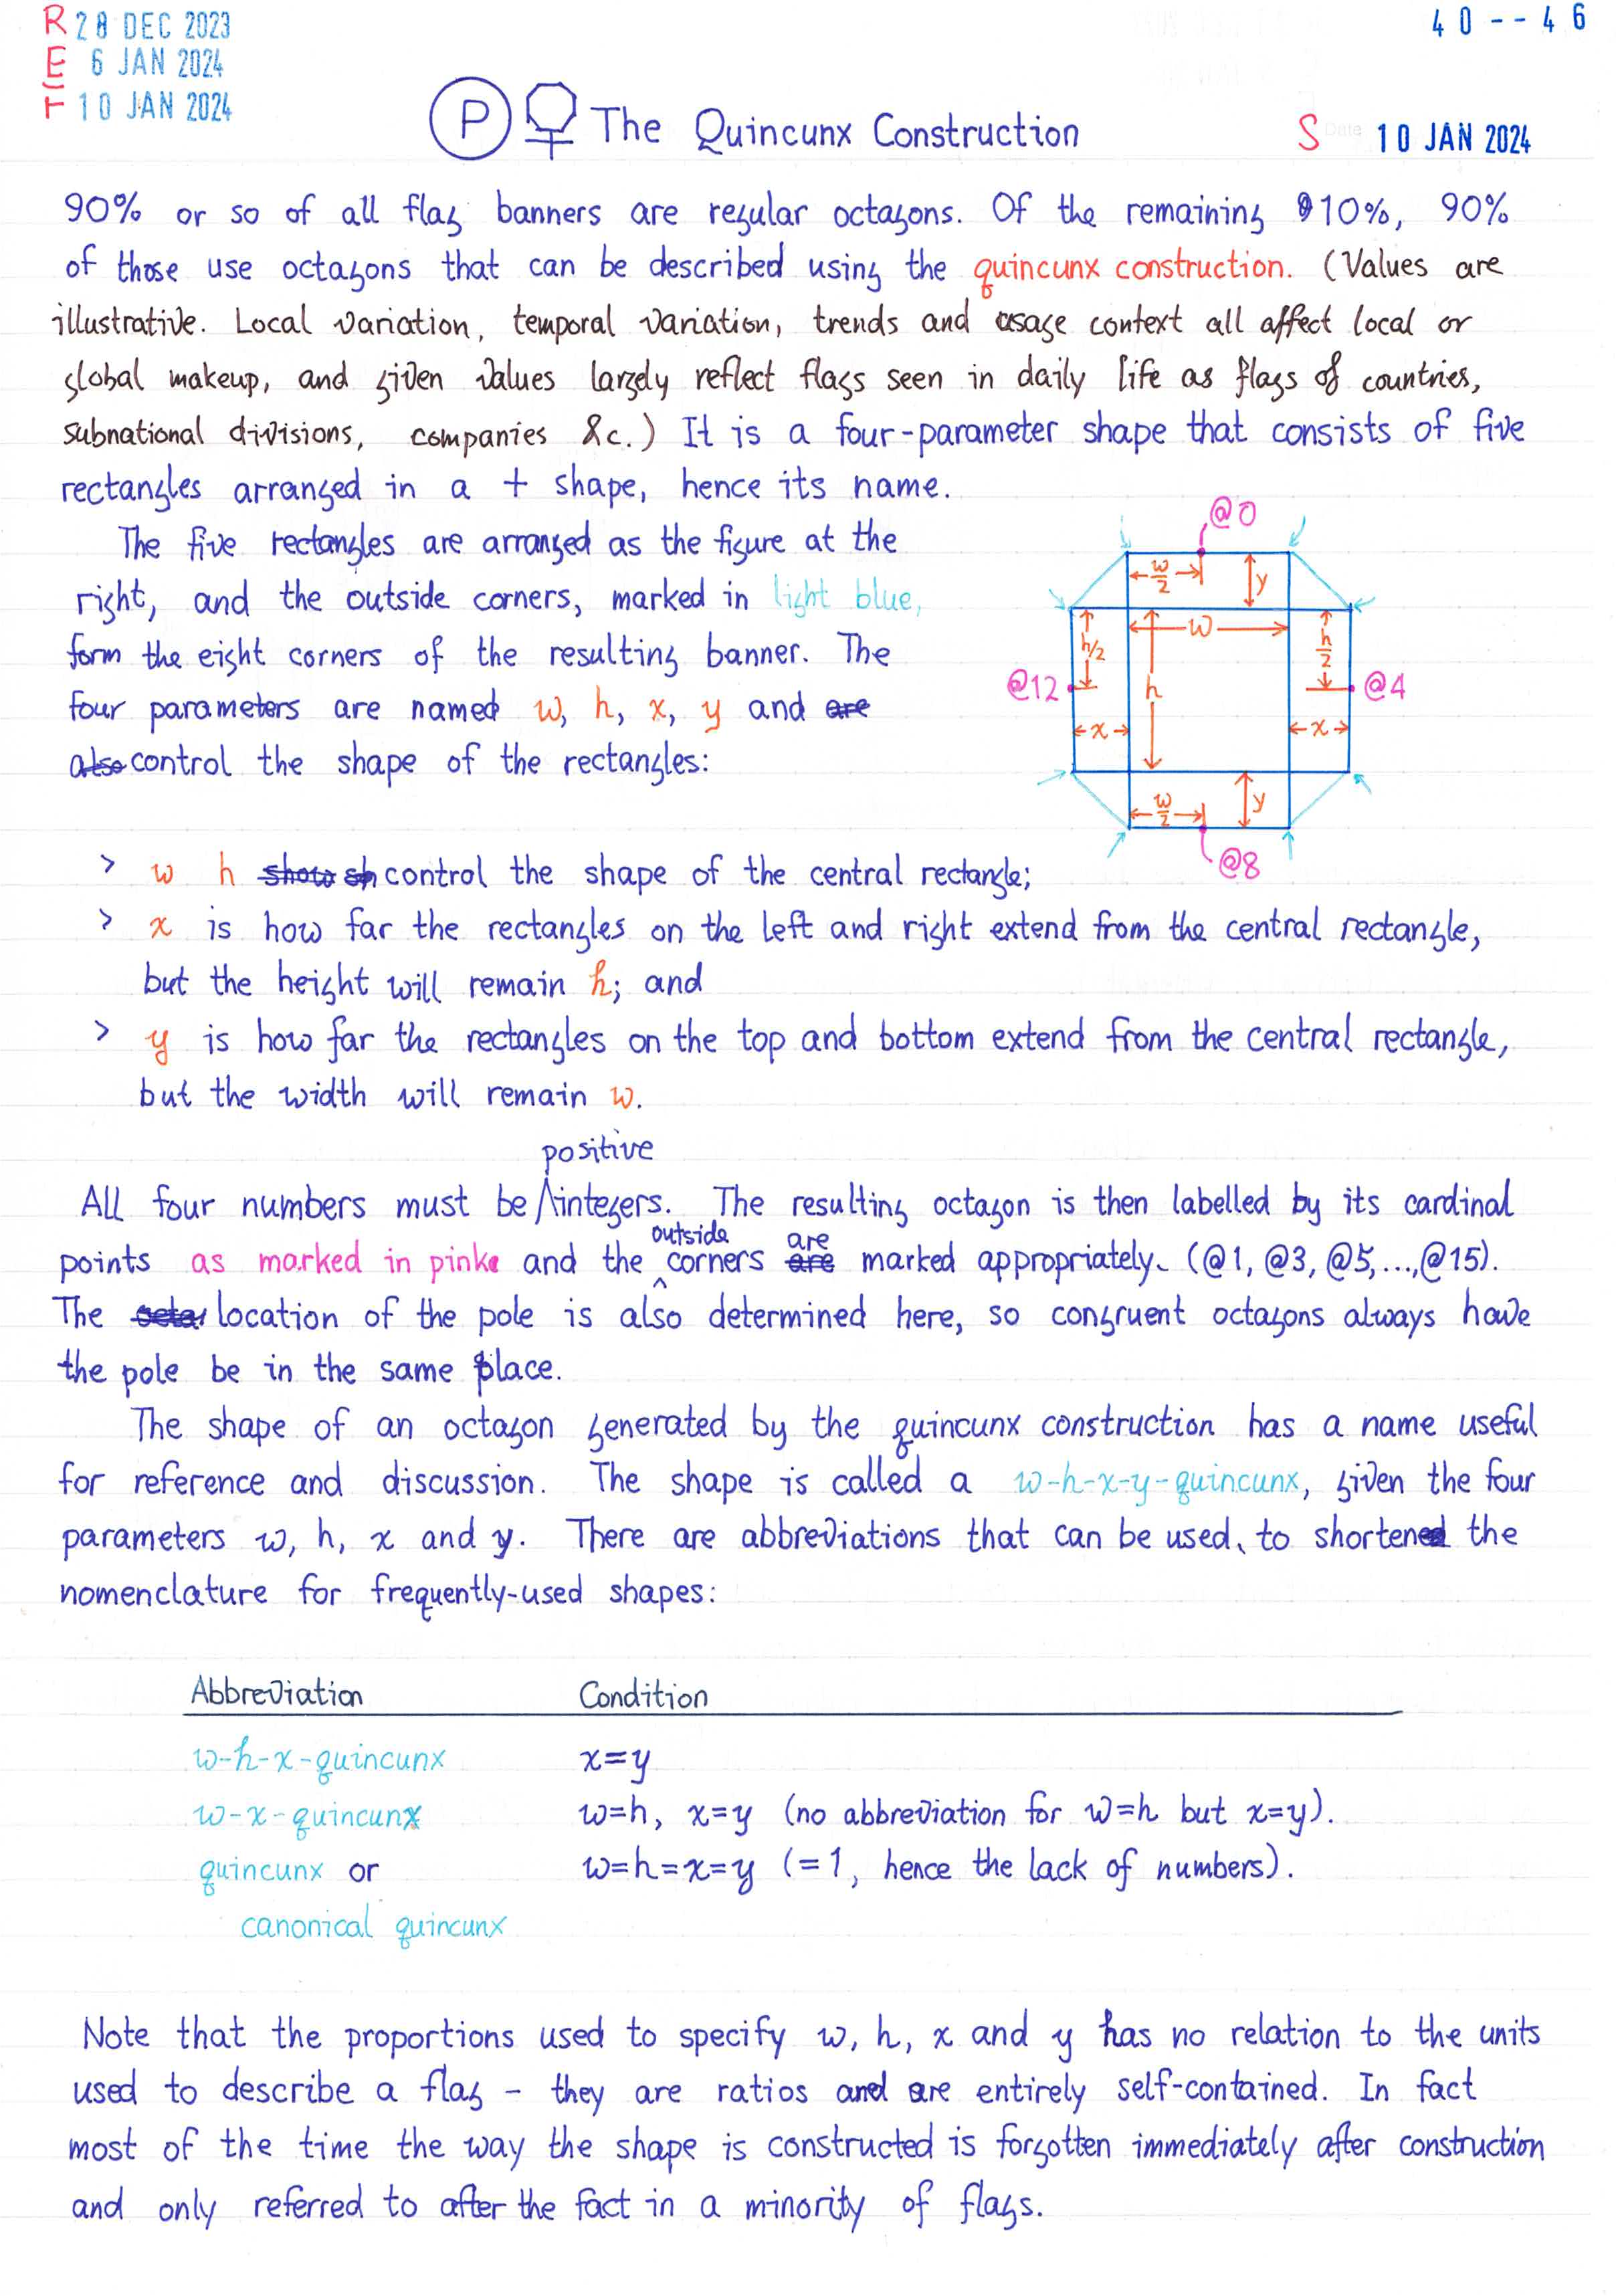 RET 28 DEC 2023
6 JAN 2024
10 JAN 2024
40--46
P The Quincunx Construction
S Date 10 JAN 2024
90% or so of all flag banners are regular octagons. Of the remaining 10%, 90%
of those use octagons that can be described using the quincunx construction. (Values are
illustrative. Local variation, temporal variation, trends and usage context all affect local or
global makeup, and given values largely reflect flags seen in daily life as flags of countries,
subnational divisions, companies &c.) It is a four-parameter shape that consists of five
rectangles arranged in a + shape, hence its name.
The five rectangles are arranged as the figure at the
right, and the outside corners, marked in light blue,
form the eight corners of the resulting banner. The
four parameters are named w, h, x, y and are
also control the shape of the rectangles:
@0
w/2
y
w
h/2
h
h/2
@12
@4
x
x
w/2
y
@8
> w h show sh control the shape of the central rectangle;
> x is how far the rectangles on the left and right extend from the central rectangle,
but the height will remain h; and
> y is how far the rectangles on the top and bottom extend from the central rectangle,
but the width will remain w.
All four numbers must be positive integers. The resulting octagon is then labelled by its cardinal
points as marked in pink and the outside corners are are marked appropriately. (@1, @3, @5,...,@15).
The location of the pole is also determined here, so congruent octagons always have
the pole be in the same place.
The shape of an octagon generated by the quincunx construction has a name useful
for reference and discussion. The shape is called a w-h-x-y-quincunx, given the four
parameters w, h, x and y. There are abbreviations that can be used, to shorten the
nomenclature for frequently-used shapes:
Abbreviation Condition
w-h-x-quincunx x=y
w-x-quincunx w=h, x=y (no abbreviation for w=h but x=y).
quincunx or w=h=x=y (=1, hence the lack of numbers).
canonical quincunx
Note that the proportions used to specify w, h, x and y has no relation to the units
used to describe a flag - they are ratios and are entirely self-contained. In fact
most of the time the way the shape is constructed is forgotten immediately after construction
and only referred to after the fact in a minority of flags.